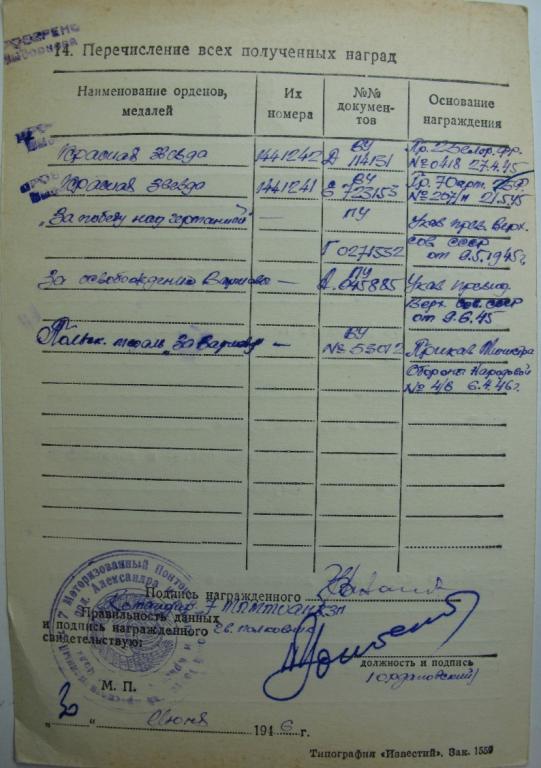 ПРОВЕРЕНО
14. Перечисление всех полученных наград
Наименование орденов, медалей
Их номера
№№ документов
Основание награждения
Красная звезда 1441242 ВУ А 114131 Пр. 2 Белор. фр. №0418 27.4.45
Красная звезда 1441241 ВУ 723153 Пр. 70 арт. 21.5.45
„За победу над германией" — ПУ Г 0271532 Указ през. Верх. сов СССР от 9.5.1945г
За освобождение Варшавы — ПУ А. 045885 Указ презид. Верх. сов. СССР от 9.6.45
Польск. медаль „За Варшаву" ВУ № 53012 Приказ Министра Обороны Народовой № 4/8 6.4.46г.
7 Моторизованный Понтонно
Александра
Подпись награжденного
Командир 7
Правильность данных
и подпись награжденного гв. полковник
свидетельствую:
должность и подпись
М. П.
(Ордановский)
„30" Июня 1946 г.
Типография «Известий». Зак. 1559